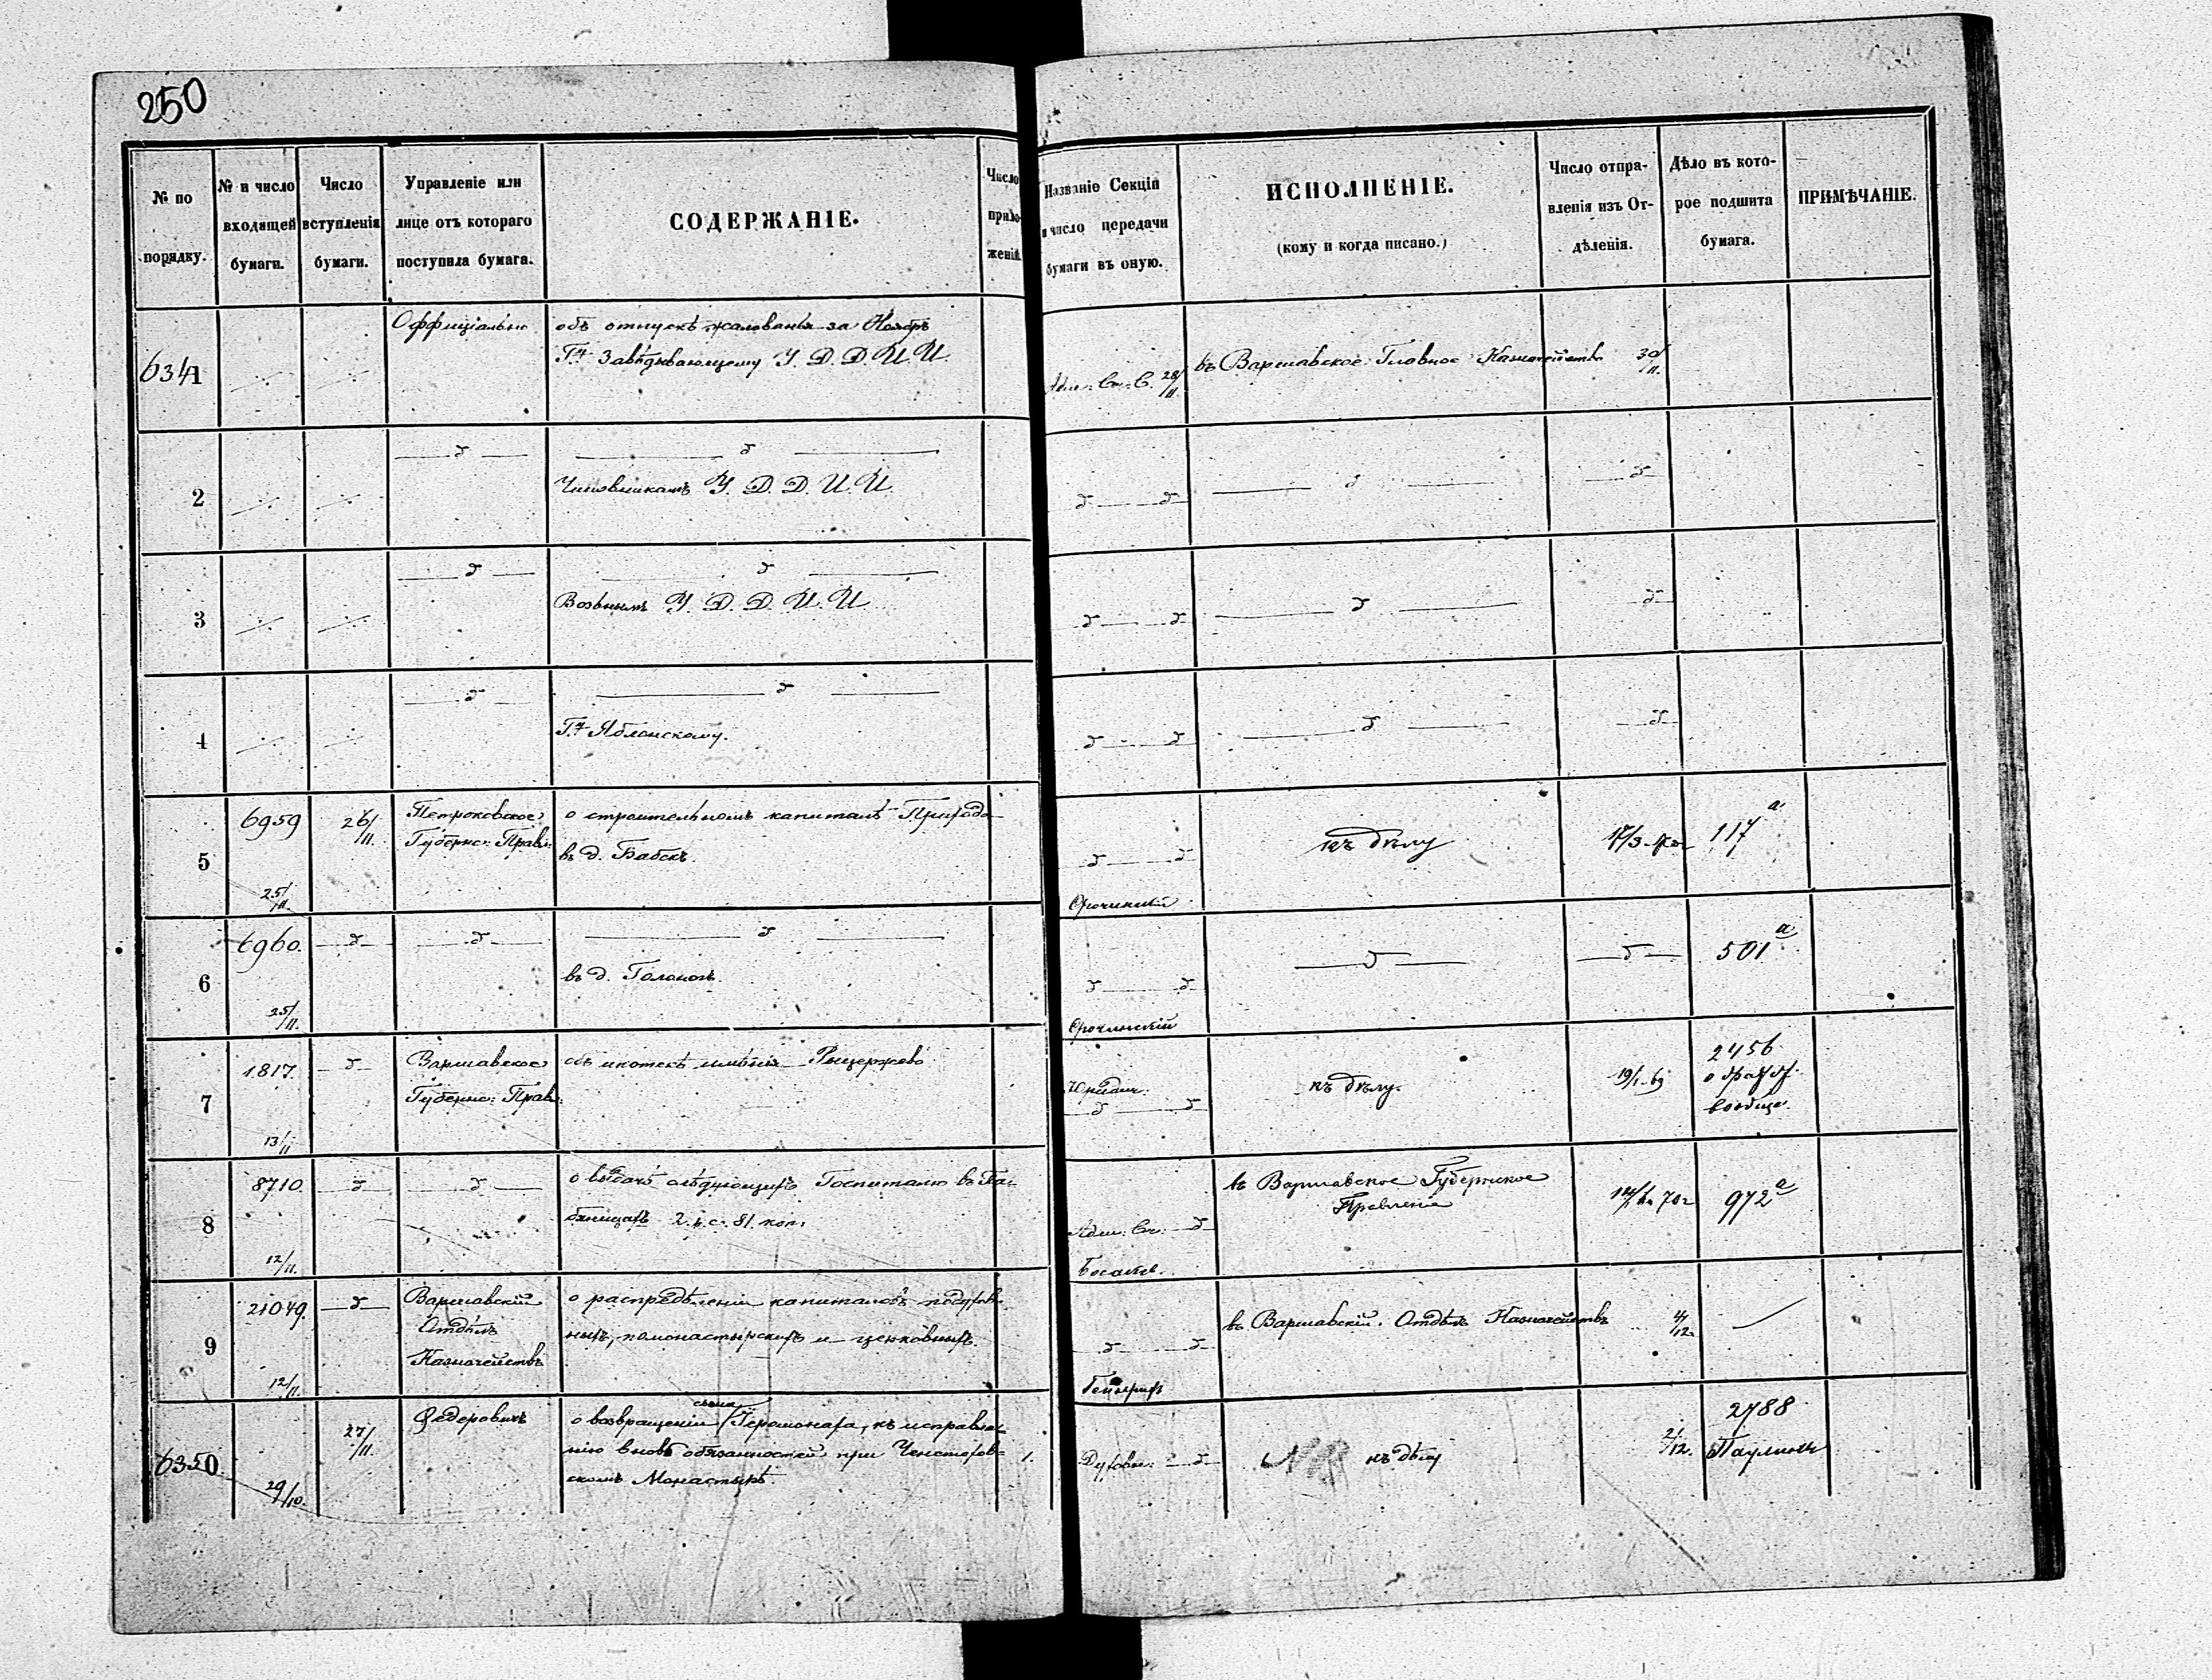 250
№ по порядку.
№ и число входящей бумаги.
Число вступленія бумаги.
Управленіе или лице отъ котораго поступила бумага.
СОДЕРЖАНІЕ.
Число приложеній.
Названіе Секціи и число передачи бумаги въ оную.
ИСПОЛНЕНІЕ.
(кому и когда писано.)
Число отправленія изъ Отдѣленія.
Дѣло въ которое подшита бумага.
ПРИМѢЧАНІЕ.
6341
Оффиціально
объ отпускѣ жалованья за Ноябрь
Гну Завѣдывающему У. Д. Д. И. И.
28/11
въ Варшавское Главное Казначейство
30/11.
2
Чиновникамъ У. Д. Д. И. И.
3
Вознымъ У. Д. Д. И. И.
4
Гну Яблонскому.
5
6959
25/11
26/11.
Петроковское
Губернс: Правл:
о строительномъ капиталѣ Прихода
въ д. Бабскѣ.
къ дѣлу
117 а
6
6960.
25/11.
въ д. Голоногѣ.
501 а
7
1817.
13/11
Варшавское
Губернс: Прав:
объ ипотекѣ имѣнія
Юридич:
къ дѣлу.
19/1 69
2456
вообще.
8
8710.
12/11.
о выдачѣ слѣдующихъ Госпиталю въ Па-
бяницахъ 2 р. с. 81 коп.
Адм: Сч:
въ Варшавское Губернское
Правленіе
972 а
9
21049.
12/11.
Варшавскій
Отдѣлъ
Казначействъ
о распредѣленіи капиталовъ подухов-
ныхъ, помонастырскихъ и церковныхъ.
въ Варшавскій Отдѣлъ Казначействъ
4/12.
6350
29/10.
27/11.
Федеровичъ
о возвращеніи сына Іеромонаха, къ исправле-
нію вновь обязанностей при Ченстохов-
скомъ Монастырѣ.
1.
Духовн:
къ дѣлу
2/12.
2788
Паулинъ